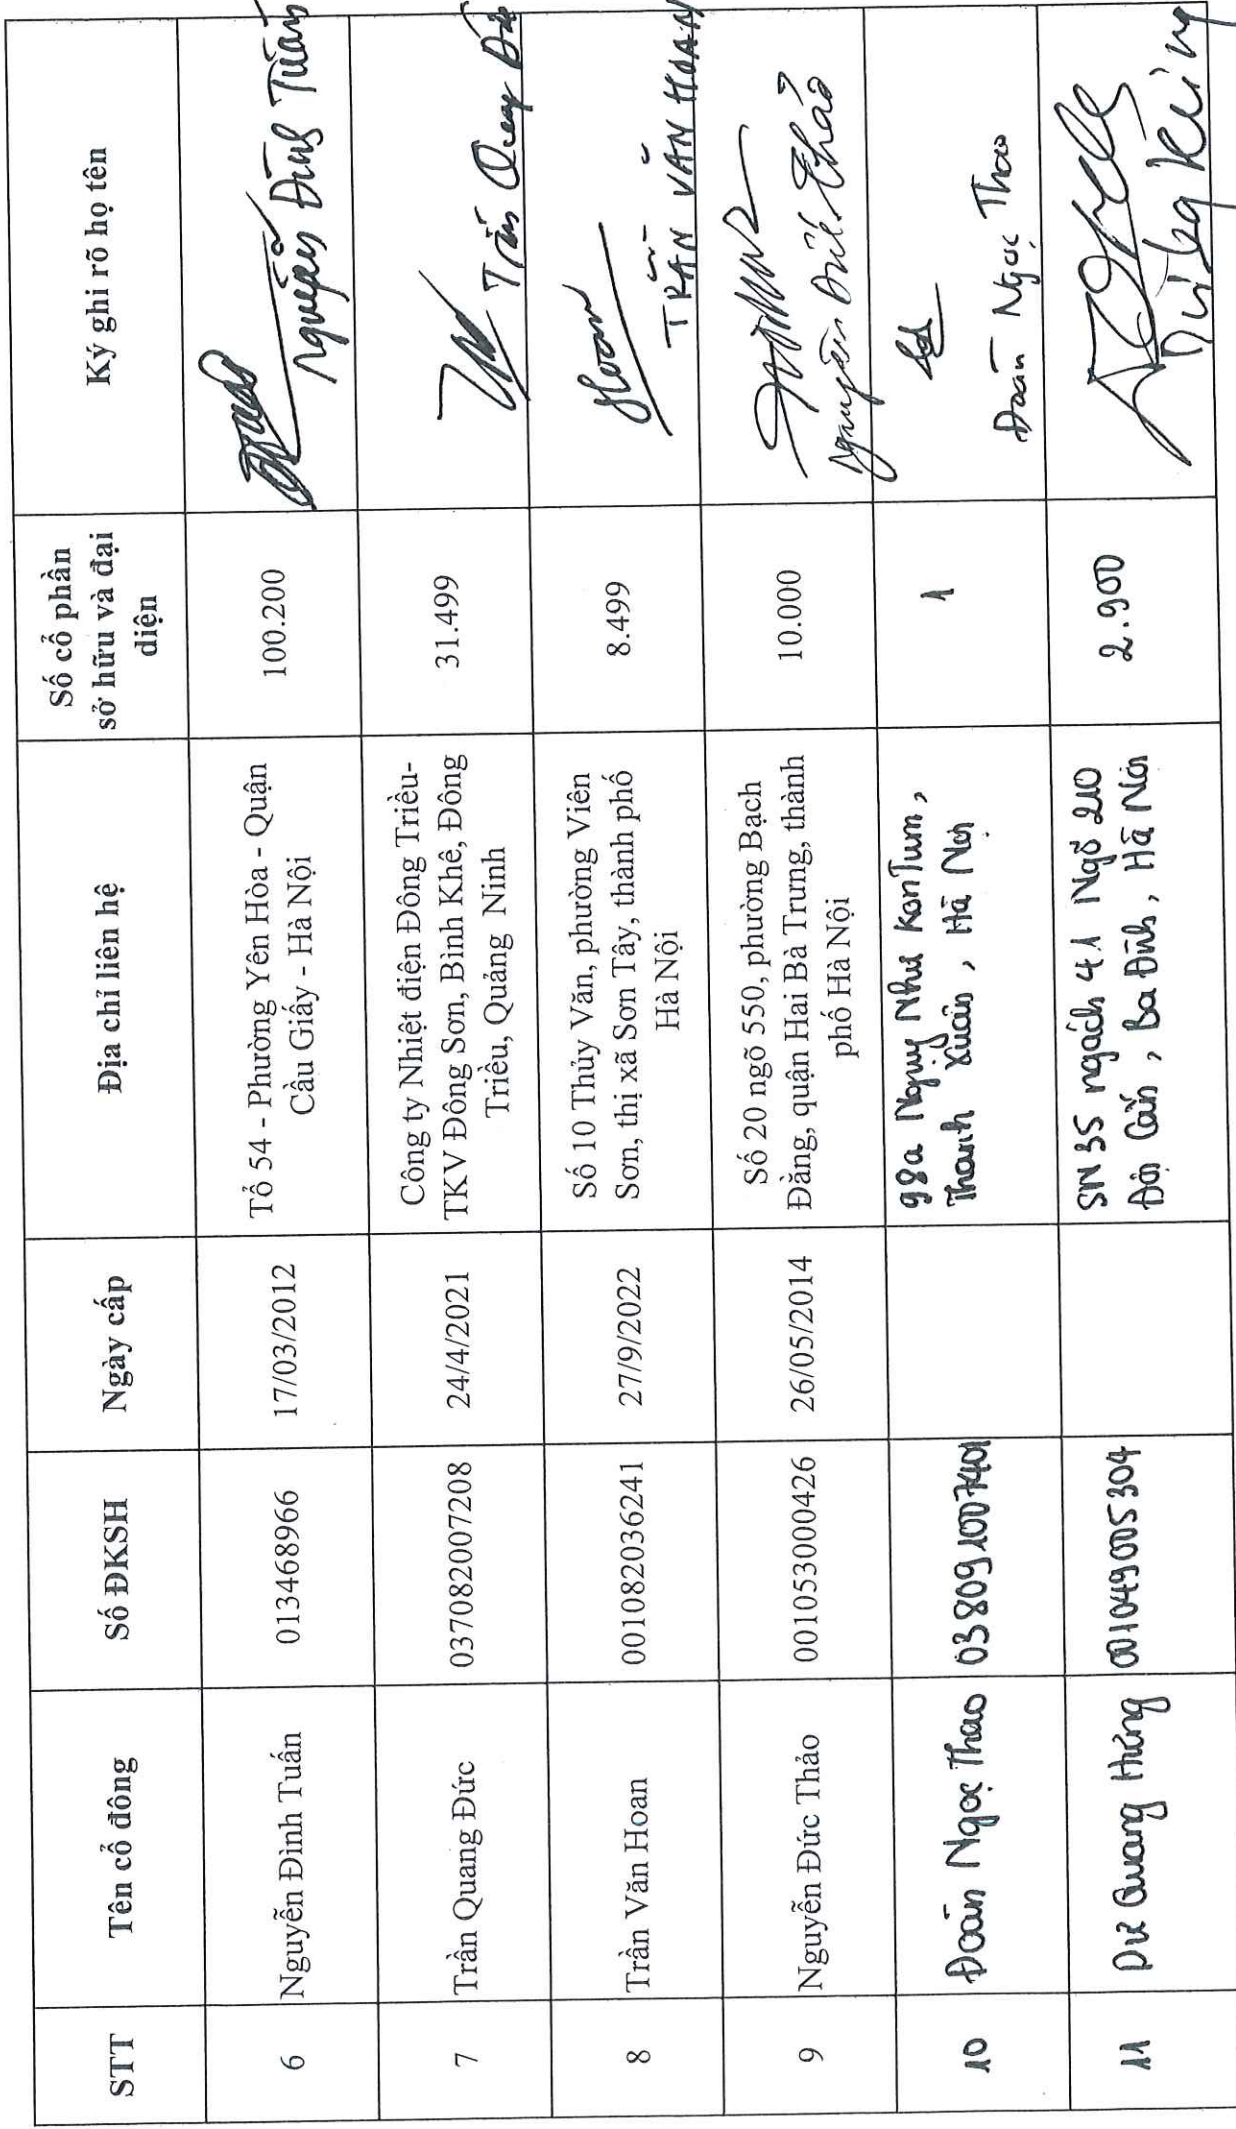 STT
Tên cổ đông
Số ĐKSH
Ngày cấp
Địa chỉ liên hệ
Số cổ phần
sở hữu và đại
diện
Ký ghi rõ họ tên
6
Nguyễn Đình Tuấn
013468966
17/03/2012
Tổ 54 - Phường Yên Hòa - Quận
Cầu Giấy - Hà Nội
100.200
Nguyễn Đình Tuấn
7
Trần Quang Đức
037082007208
24/4/2021
Công ty Nhiệt điện Đông Triều-
TKV Đông Sơn, Bình Khê, Đông
Triều, Quảng Ninh
31.499
Trần Quang Đức
8
Trần Văn Hoan
001082036241
27/9/2022
Số 10 Thủy Văn, phường Viên
Sơn, thị xã Sơn Tây, thành phố
Hà Nội
8.499
Hoan
TRẦN VĂN HOAN
9
Nguyễn Đức Thảo
001053000426
26/05/2014
Số 20 ngõ 550, phường Bạch
Đằng, quận Hai Bà Trưng, thành
phố Hà Nội
10.000
Nguyễn Đức Thảo
10
Đoàn Ngọc Thao
038091007401
98a Ngụy Như KonTum,
Thanh Xuân, Hà Nội
1
Đoàn Ngọc Thao
11
Dư Quang Hưng
001049005304
SN 35 ngách 41 Ngõ 210
Đội Cấn, Ba Đình, Hà Nội
2.900